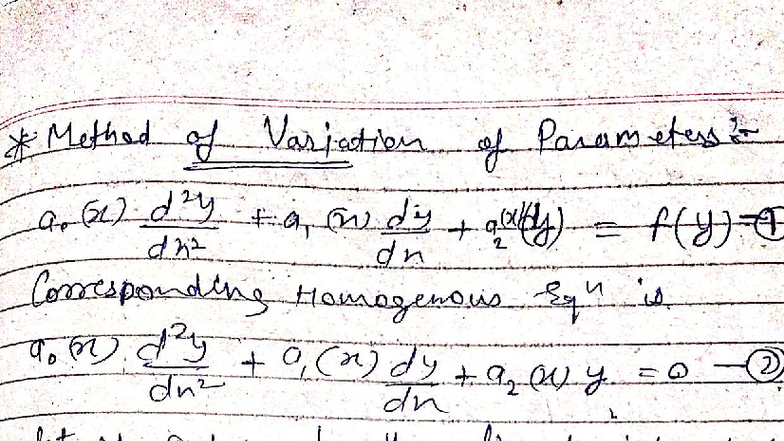 * Method of Variation of Parameters :-
a₀(x) d²y/dx² + a₁(x) dy/dx + a₂(x)(y) = f(y) — ①
Corresponding Homogenous Eqⁿ is
a₀(x) d²y/dx² + a₁(x) dy/dx + a₂(x) y = 0 — ②